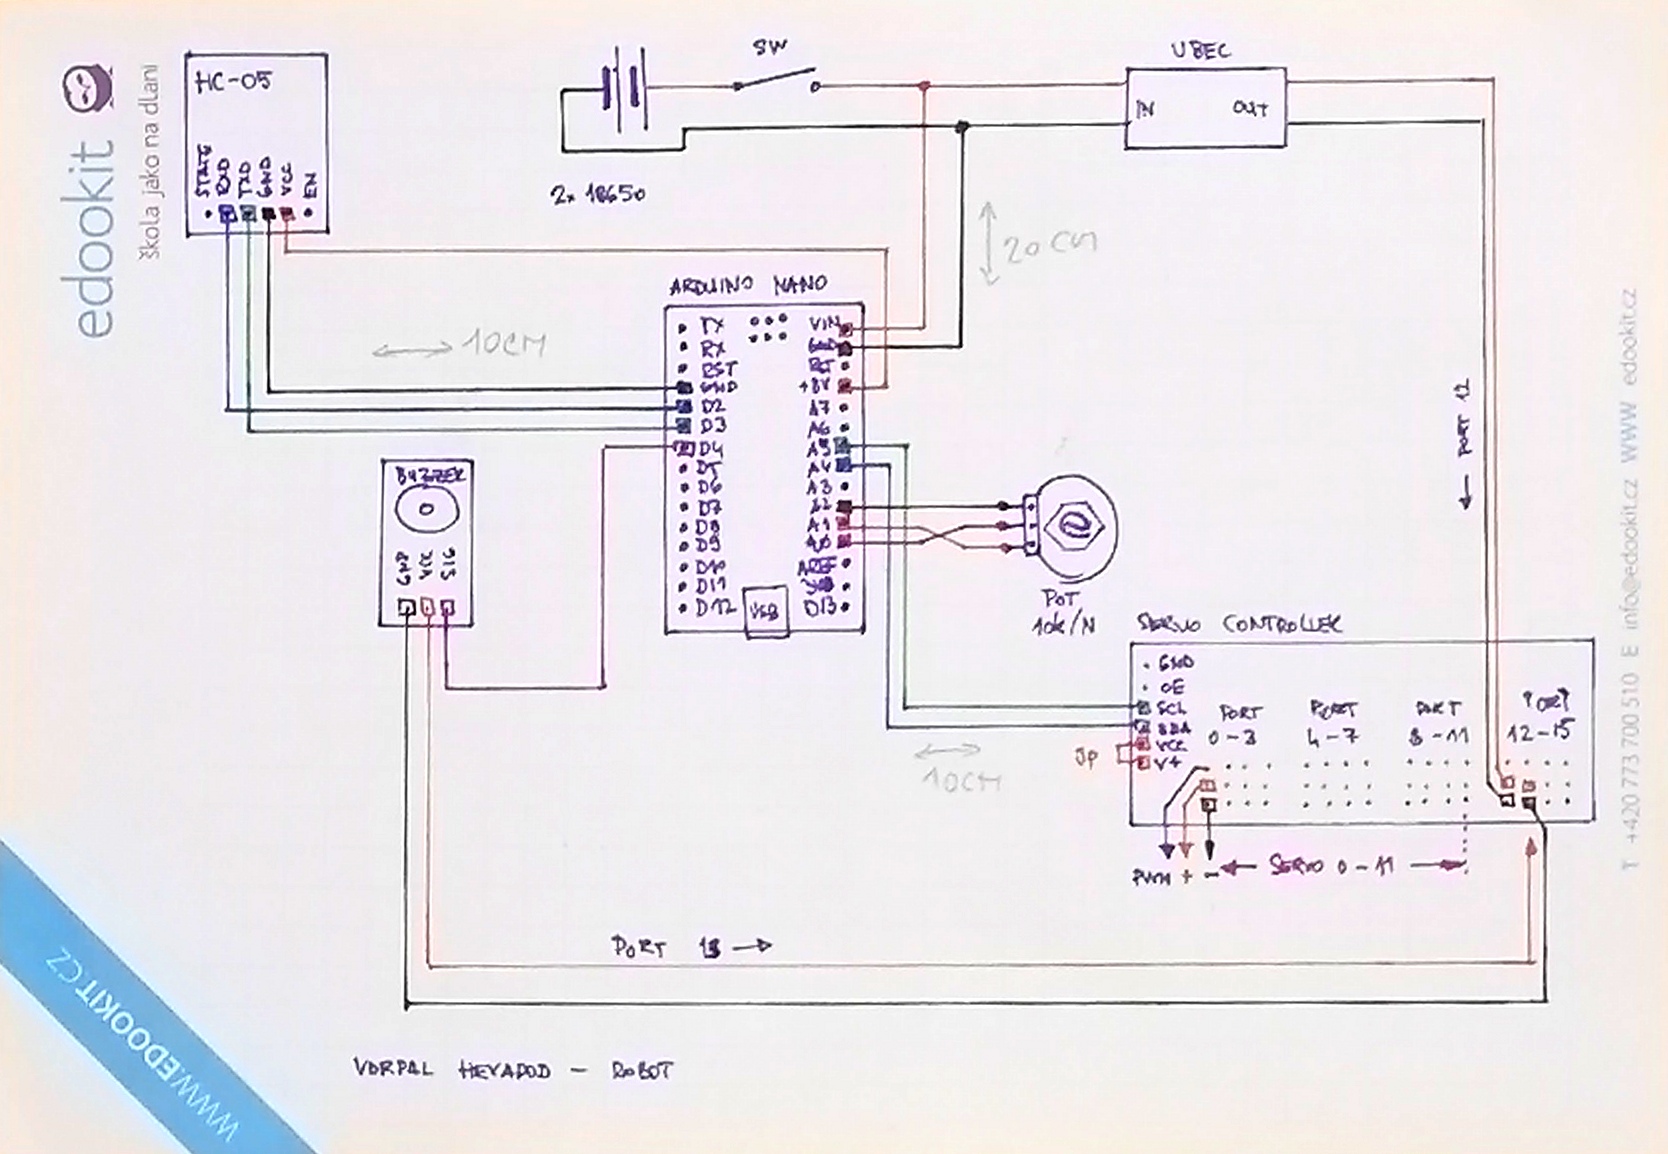 edookit
škola jako na dlani
HC-05
STATE
RXD
TXD
GND
VCC
EN
SW
2x 18650
UBEC
IN
OUT
20CM
10CM
ARDUINO NANO
TX
RX
RST
GND
D2
D3
D4
D5
D6
D7
D8
D9
D10
D11
D12
USB
VIN
+5V
A7
A6
A5
A4
A3
A2
A1
A0
D13
BUZZER
GND
VCC
SIG
POT
10k/N
← PORT 12
SERVO CONTROLLER
GND
OE
SCL
SDA
VCC
V+
JP
PORT
0-3
PORT
4-7
PORT
8-11
PORT
12-15
10CM
PWM + -
← SERVO 0-11 →
PORT 13 →
VORPAL HEXAPOD - ROBOT
WWW.EDOOKIT.CZ
T +420 773 700 510 E info@edookit.cz WWW edookit.cz